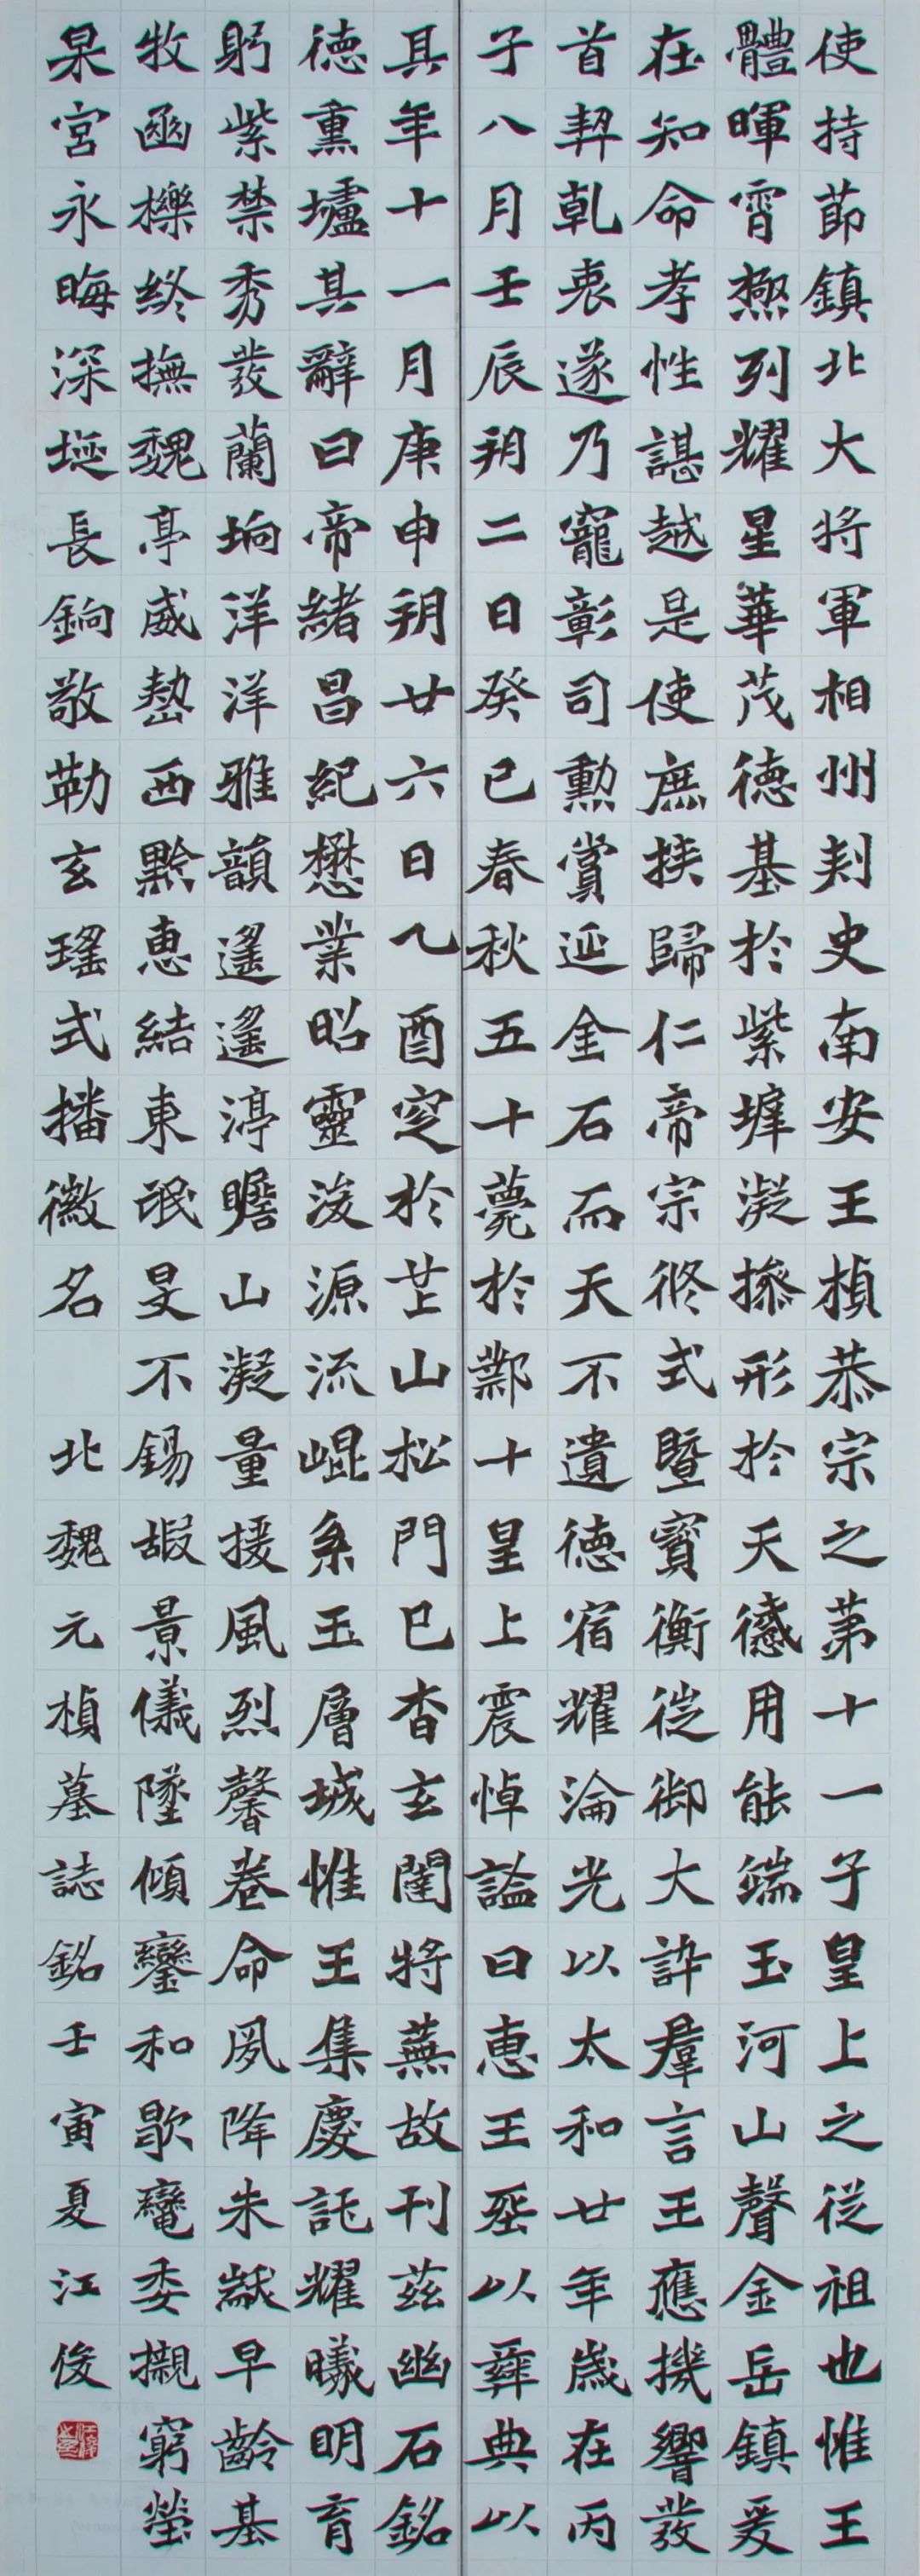 使持節鎮北大將軍相州刾史南安王楨恭宗之苐十一子皇上之從祖也惟王
體暉霄極列耀星華茂德基於紫墀凝操形於天感用能端玉河山聲金岳鎮爰
在知命孝性諶越是使庶族歸仁帝宗攸式暨寶衡徙御大訴羣言王應機響發
首契乹衷遂乃寵彰司勳賞延金石而天不遺德宿耀淪光以太和廿年歲在丙
子八月壬辰朔二日癸巳春秋五十薨於鄴十皇上震悼謚曰惠王塟以彛典以
其年十一月庚申朔廿六日乙酉窆於芒山松門巳杳玄闥將蕪故刊茲幽石銘
德熏壚其辭曰帝緒昌紀懋業昭靈浚源流崐系玉層城惟王集慶託耀曦明育
躬紫禁秀發蘭坰洋洋雅韻遙遙渟瞻山凝量援風烈馨卷命夙降朱黻早齡基
牧函櫟終撫魏亭威懃西黔惠結東氓旻不錫嘏景儀墜傾鑾和歇鼃委攡窮塋
泉宮永晦深埏長鉰敬勒玄瑤式播徽名
北魏元楨墓誌銘壬寅夏江俊